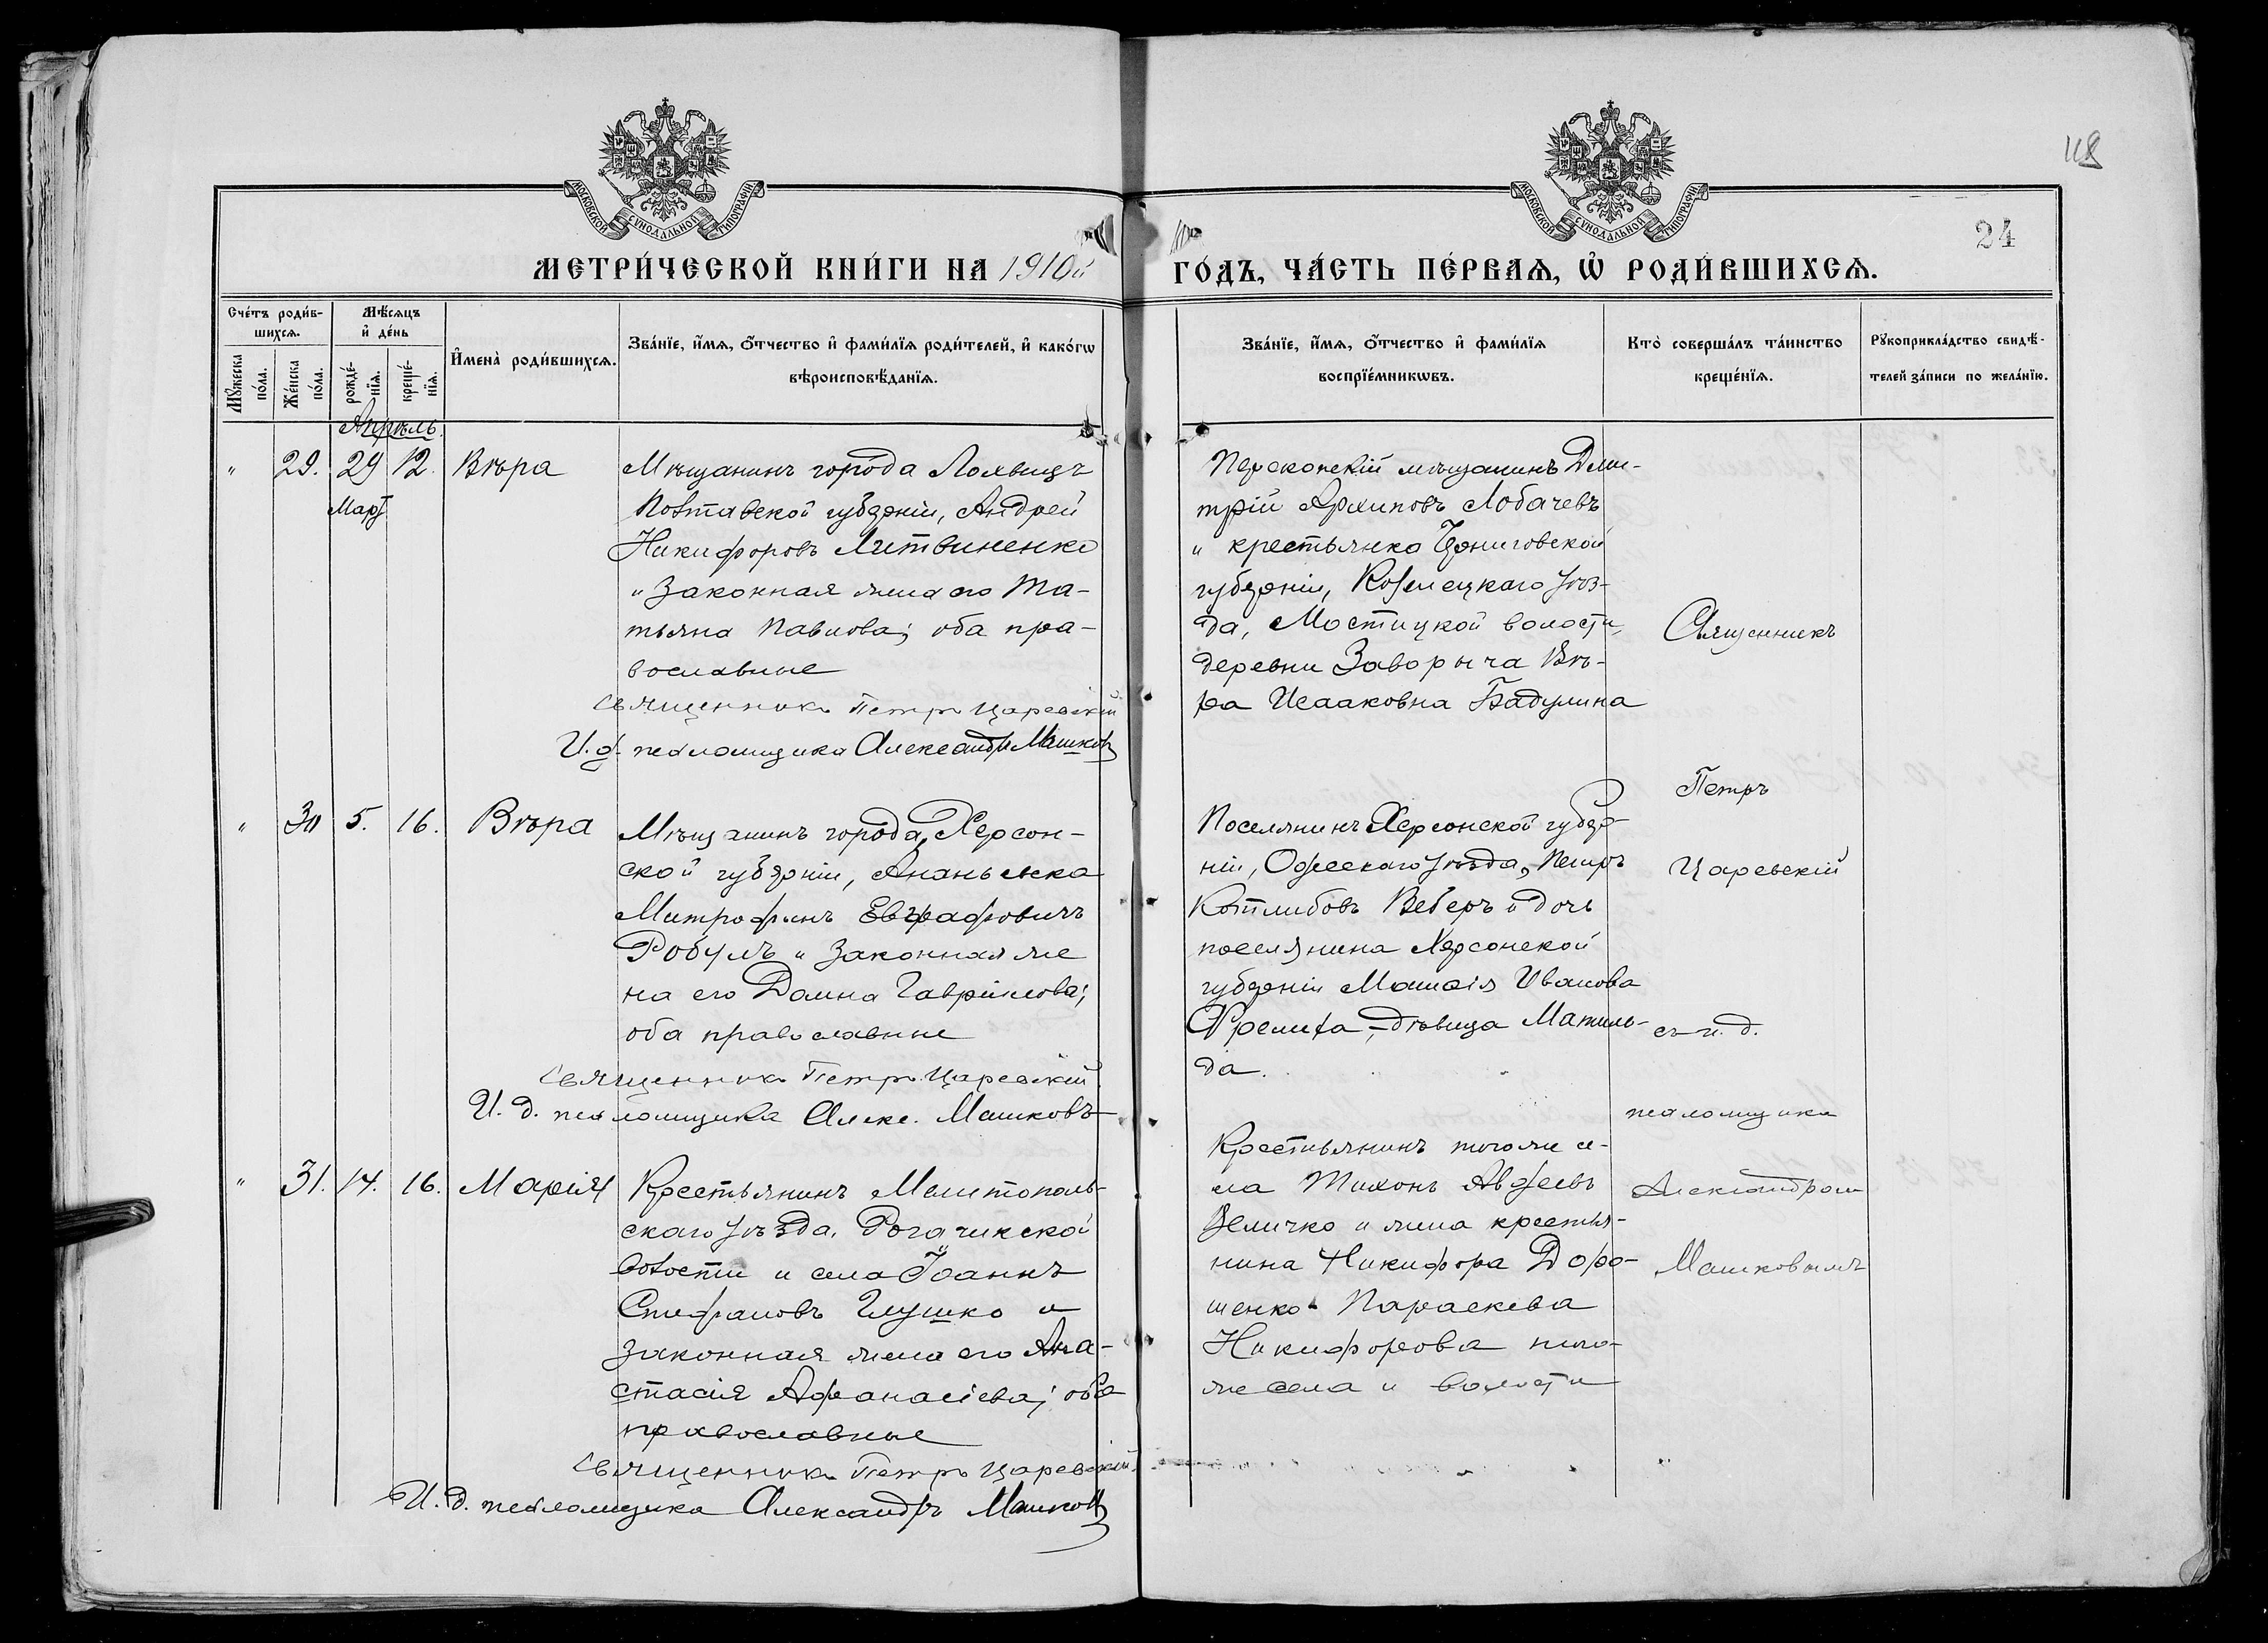 118
МОСКОВСКОЙ СУНОДАЛЬНОЙ ТИПОГРАФІИ
МОСКОВСКОЙ СУНОДАЛЬНОЙ ТИПОГРАФІИ
24
МЕТРИ́ЧЕСКОЙ КНИ́ГИ НА 1910й
ГО́ДЪ, ЧА́СТЬ ПЕ́РВАѦ, Ѡ҆ РОДИ́ВШИХСѦ.
Сче́тъ роди́в-
шихсѧ.
Мꙋ́жеска
по́ла.
Же́нска
по́ла.
Мѣ́сѧцъ
и҆ де́нь
рожде́-
нїѧ.
креще́-
нїѧ.
И҆мена̀ роди́вшихсѧ.
Зва́нїе, и҆́мѧ, ѻ҆́тчество и҆ фами́лїѧ роди́телей, и҆ како́гѡ
вѣроисповѣ́данїѧ.
Зва́нїе, и҆́мѧ, ѻ҆́тчество и҆ фами́лїѧ
воспрїе́мникѡвъ.
Кто̀ соверша́лъ та́инство
креще́нїѧ.
Рꙋкоприкла́дство свидѣ́-
телей за́писи по жела́нїю.
Апрѣль.
" 29. 29 12. Вѣра
Март
Мѣщанинъ города Лохвицъ
Полтавской губерніи, Андрей
Никифоровъ Литвиненко
и законная жена его Та-
тьяна Павлова; оба пра-
вославные
Священникъ Петръ Царевскій
И. д. псаломщика Александръ Машковъ
Перекопскій мѣщанинъ Дми-
трій Архиповъ Лобачевъ
и крестьянка Черниговской
губерніи, Козелецкаго уѣз-
да, Мостицкой волости,
деревни Заворыча Вѣ-
ра Исааковна Бадулина
" 30 5. 16. Вѣра
Мѣщанинъ города, Херсон-
ской губерніи, Ананьевка
Митрофанъ Евграфовичъ
Робулъ и законная же
на его Домна Гавриилова;
оба православные
Священникъ Петръ Царевскій
И. д. псаломщика Алекс. Машковъ
Поселянинъ Херсонской губер-
ніи, Одесскаго уѣзда, Петръ
Котлибовъ Веберъ и дочь
поселянина Херсонской
губерніи Матвія Иванова
дѣвица Матиль-
да.
" 31. 14. 16. Марія
Крестьянинъ Мелитополь-
скаго уѣзда, Рогачикской
волости и села Іоаннъ
Стефановъ Глушко и
законная жена его Ана-
стасія Афанасіева; оба
православные
Священникъ Петръ Царевскій
И. д. псаломщика Александръ Машковъ
Крестьянинъ того же се-
ла Тихонъ Авдеевъ
Величко и жена крестья-
нина Никифора Доро-
шенко Параскева
Никифорова того-
же села и волости
Священникъ
Петръ
Царевскій
съ и. д.
псаломщика
Александромъ
Машковымъ